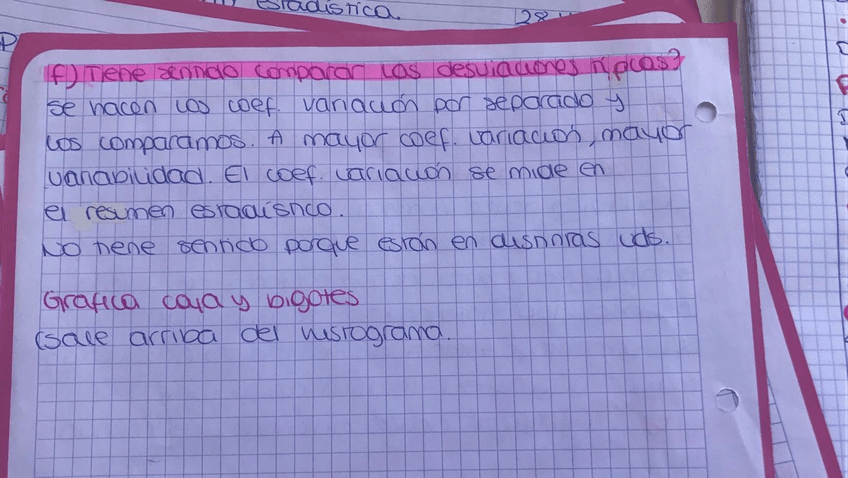 estadística. 28
f) Tiene sentido comparar las desviaciones típicas?
se hacen los coef. variación por separado y
los comparamos. A mayor coef. variación, mayor
variabilidad. El coef. variación se mide en
el resumen estadístico.
No tiene sentido porque están en distintas uds.
Grafica caja y bigotes
(sale arriba del histograma.